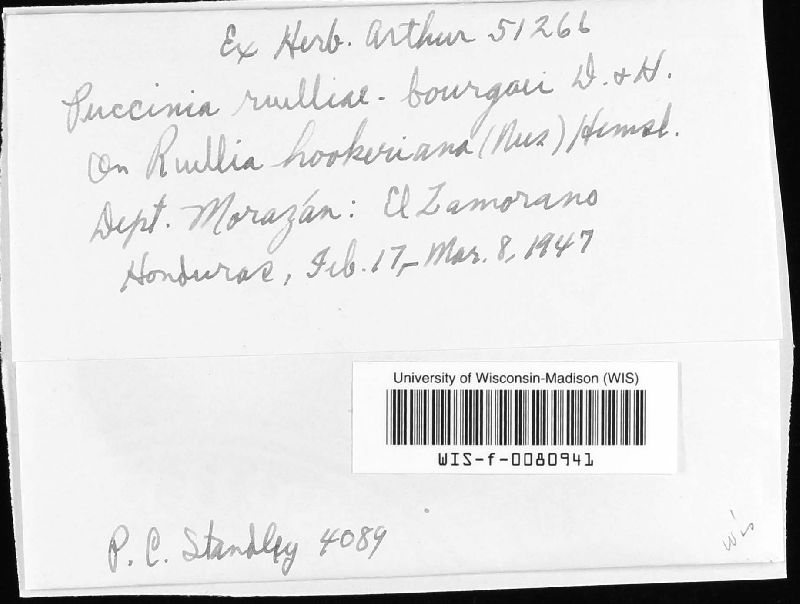 Ex Herb. Arthur 51266
Puccinia ruelliae-bourgaei D. & H.
On Ruellia hookeriana (Nees) Hemsl.
Dept. Morazán: El Zamorano
Honduras, Feb. 17,-Mar. 8, 1947
University of Wisconsin-Madison (WIS)
WIS-f-0080941
P. C. Standley 4089
Wis